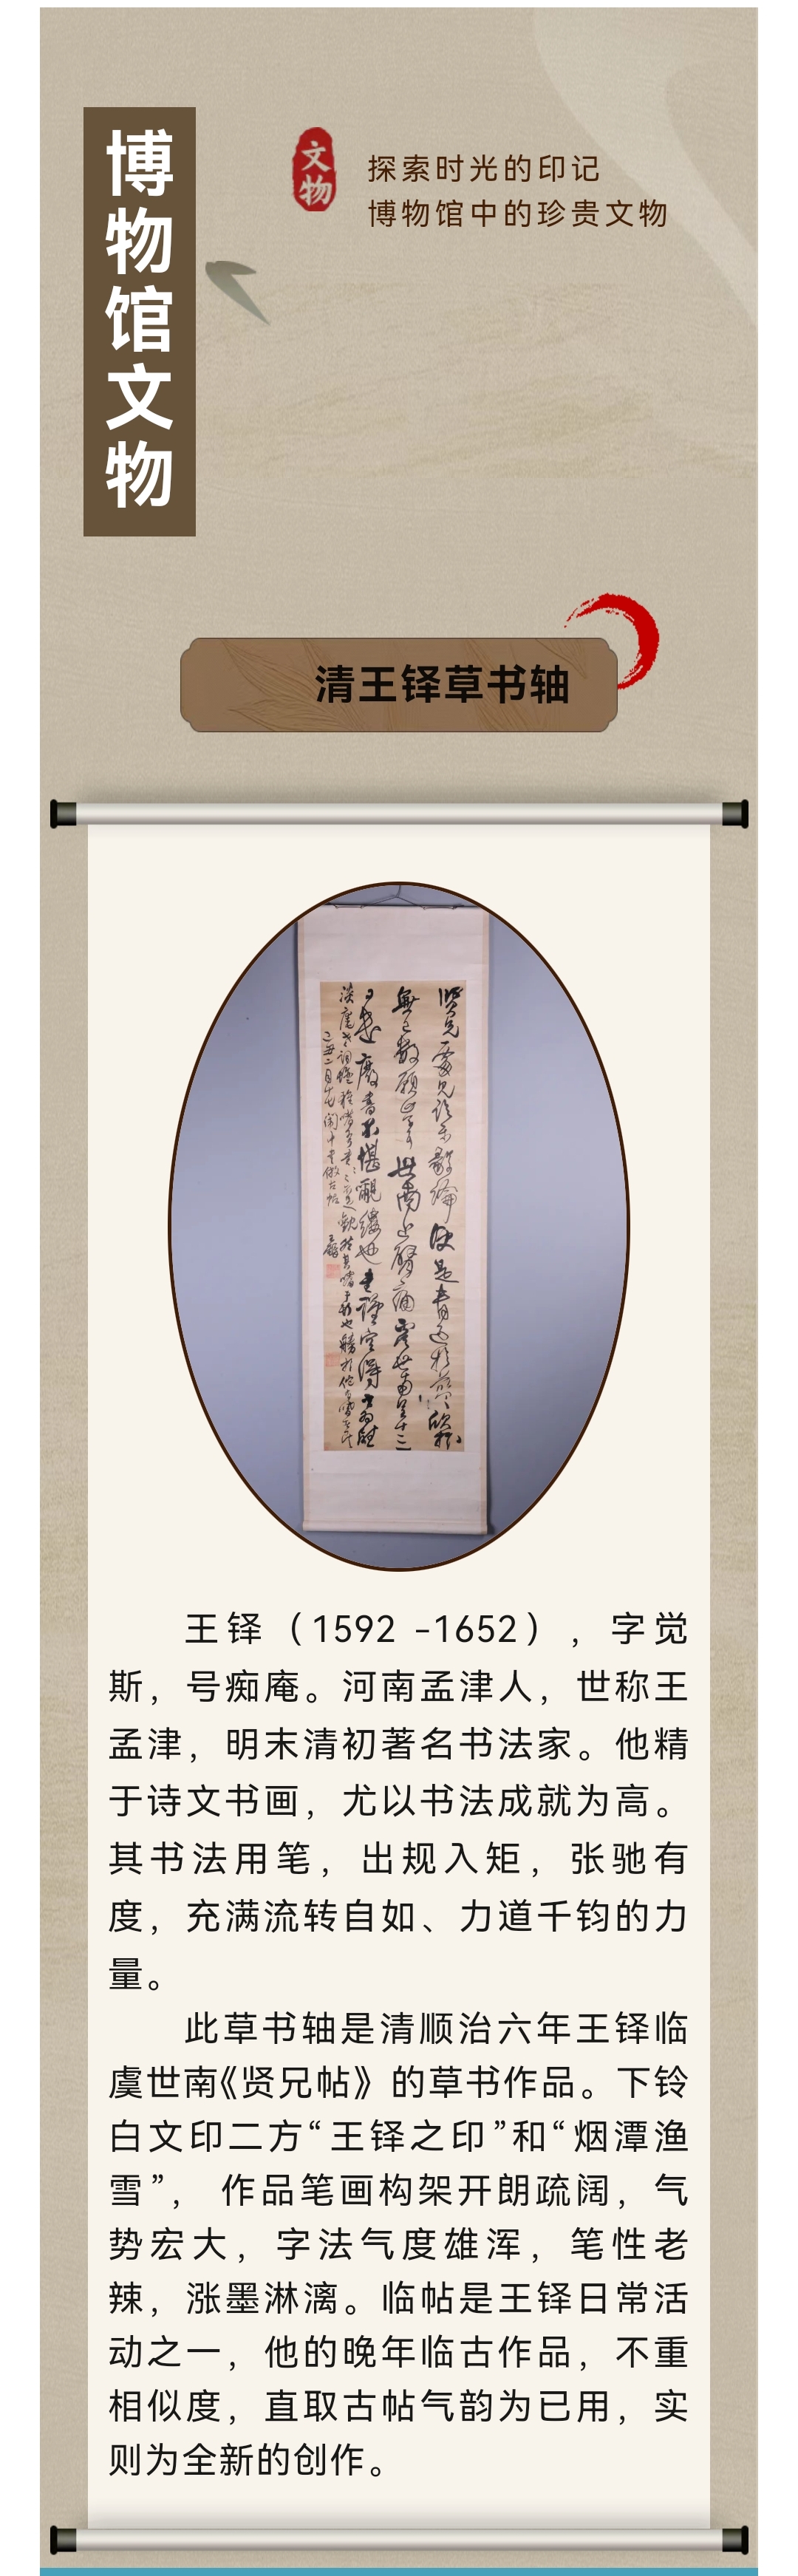 博物馆文物
文物
探索时光的印记
博物馆中的珍贵文物
清王铎草书轴
王铎（1592 -1652），字觉
斯，号痴庵。河南孟津人，世称王
孟津，明末清初著名书法家。他精
于诗文书画，尤以书法成就为高。
其书法用笔，出规入矩，张驰有
度，充满流转自如、力道千钧的力
量。
此草书轴是清顺治六年王铎临
虞世南《贤兄帖》的草书作品。下铃
白文印二方“王铎之印”和“烟潭渔
雪”， 作品笔画构架开朗疏阔，气
势宏大，字法气度雄浑，笔性老
辣，涨墨淋漓。临帖是王铎日常活
动之一，他的晚年临古作品，不重
相似度，直取古帖气韵为已用，实
则为全新的创作。